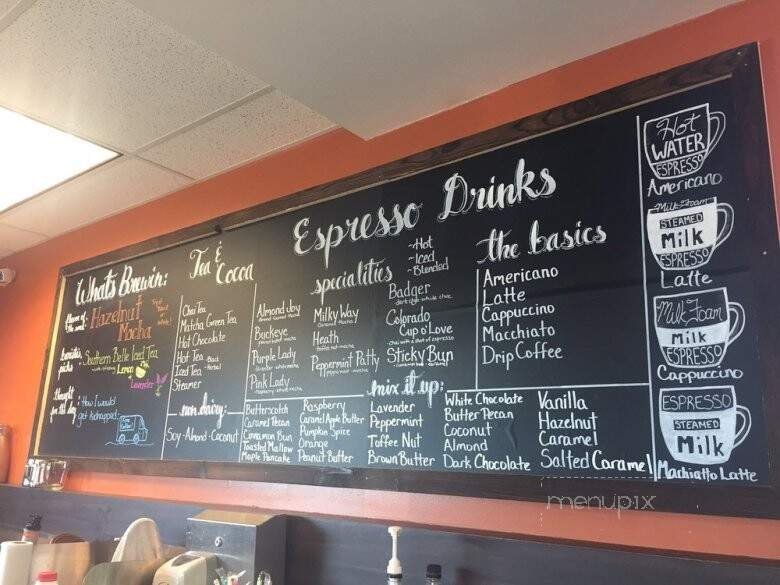 What's Brewin:
Flavor of the week:
Hazelnut
Mocha
barista's picks
Southern Belle Iced Tea
Lemon
Lavender
thought for the day
"How I would get kidnapped:"
Tea &
Cocoa
Chai Tea
Matcha Green Tea
Hot Chocolate
Hot Tea
Iced Tea
Steamer
non dairy:
Soy - Almond - Coconut
Espresso Drinks
specialities
~Hot
~Iced
~Blended
Almond Joy
Buckeye
Purple Lady
Pink Lady
Milky Way
Caramel mocha
Heath
Peppermint Patty
Badger
Colorado
Cup o' Love
chai with a shot of espresso
Sticky Bun
the basics
Americano
Latte
Cappuccino
Macchiato
Drip Coffee
mix it up:
Butterscotch
Caramel Pecan
Cinnamon Bun
Toasted Mallow
Maple Pancake
Raspberry
Caramel Apple Butter
Pumpkin Spice
Orange
Peanut Butter
Lavender
Peppermint
Toffee Nut
Brown Butter
White Chocolate
Butter Pecan
Coconut
Almond
Dark Chocolate
Vanilla
Hazelnut
Caramel
Salted Caramel
Hot
WATER
ESPRESSO
Americano
Milk Foam
STEAMED
Milk
ESPRESSO
Latte
Milk Foam
Milk
ESPRESSO
Cappuccino
ESPRESSO
STEAMED
Milk
Machiatto Latte
menupix